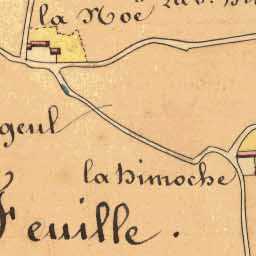 la Noë
geul
la himoche
Feuille.